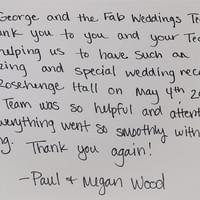 George and the Fab Weddings Te
ank you to you and your Tea
helping us to have such an
zing and special wedding rece
Rosehenge Hall on May 4th 2
Team was so helpful and attent
everything went so smoothly with
g. Thank you again!
- Paul & Megan Wood